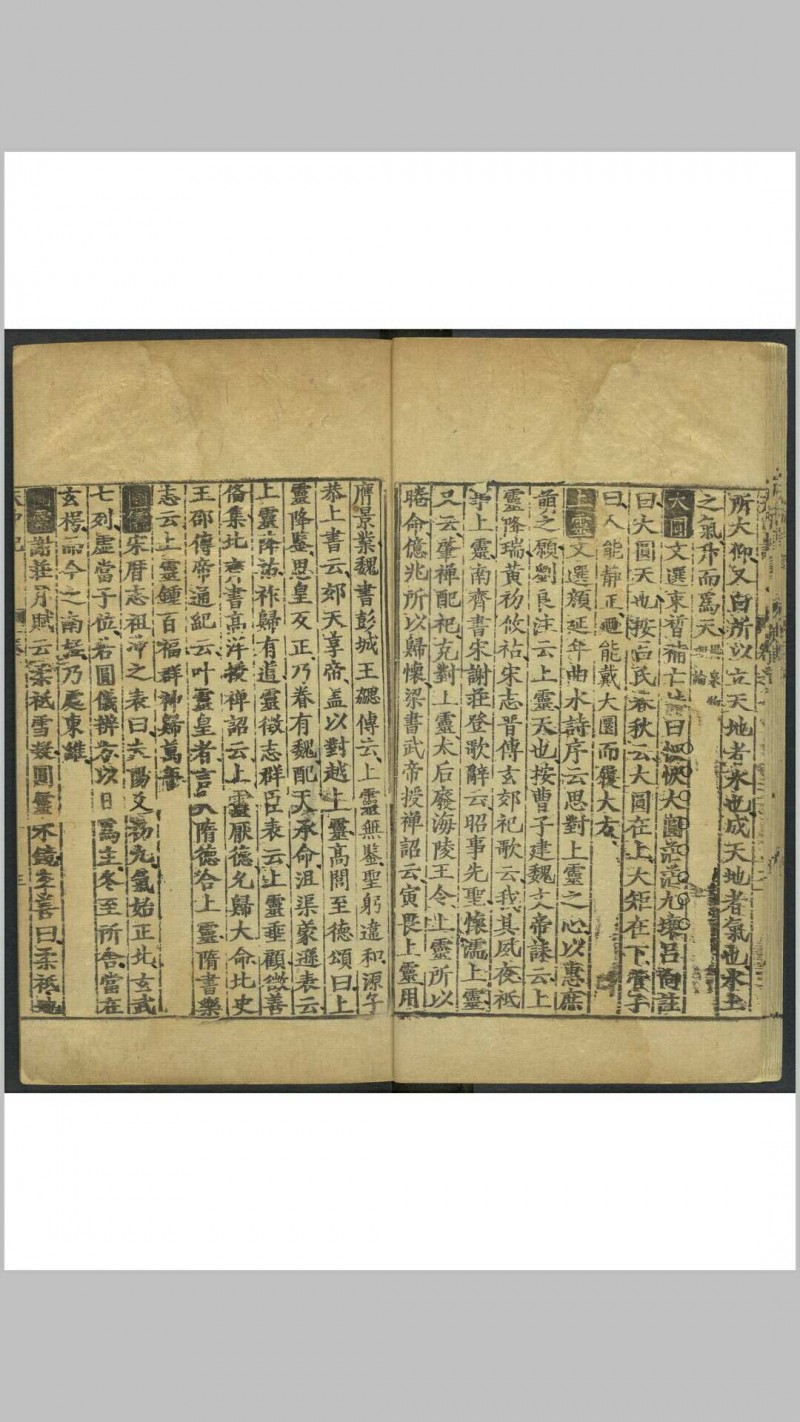 所大仰又曰所以立天地者水也成天地者氣也水土
之氣升而爲天
大圓文選束晳補亡詩曰恢恢大圓茫茫九壤呂向註
曰大圓天也按呂氏春秋云大圓在上大矩在下管子
曰人能靜正能戴大圓而履大方
上靈文選顔延年曲水詩序云思對上靈之心以惠庶
萌之願劉良注云上靈天也按曹子建魏文帝誄云上
靈降瑞黃初攸祜宋志晉傳玄郊祀歌云我其夙夜祗
事上靈南齊書宋謝莊登歌辭云昭事先聖懷濡上靈
又云肇禋配祀克對上靈太后廢海陵王令上靈所以
睠命億兆所以歸懷梁書武帝授禪詔云寅畏上靈用
膺景業魏書彭城王勰傳云上靈無鑒聖躬違和源子
恭上書云郊天享帝盖以對越上靈高閭至德頌曰上
靈降鑒思皇反正乃眷有魏配天承命沮渠蒙遜表云
上靈降祐祚歸有道靈徵志群臣表云上靈垂顧徵善
偹集北齊書高洋授禪詔云上靈厭德允歸大命北史
王邵傳帝通紀云叶靈皇者言入隋德合上靈隋書樂
志云上靈鍾百福群神歸萬
圓儀宋厝志祖冲之表曰夫陽爻初九氣始正北玄武
七列虛當子位若圓儀辨方以日爲主冬至所舍當在
玄枵而今之南極乃處東維
圓靈謝莊月賦云柔祗雪凝圓靈水鏡李善曰柔祗地